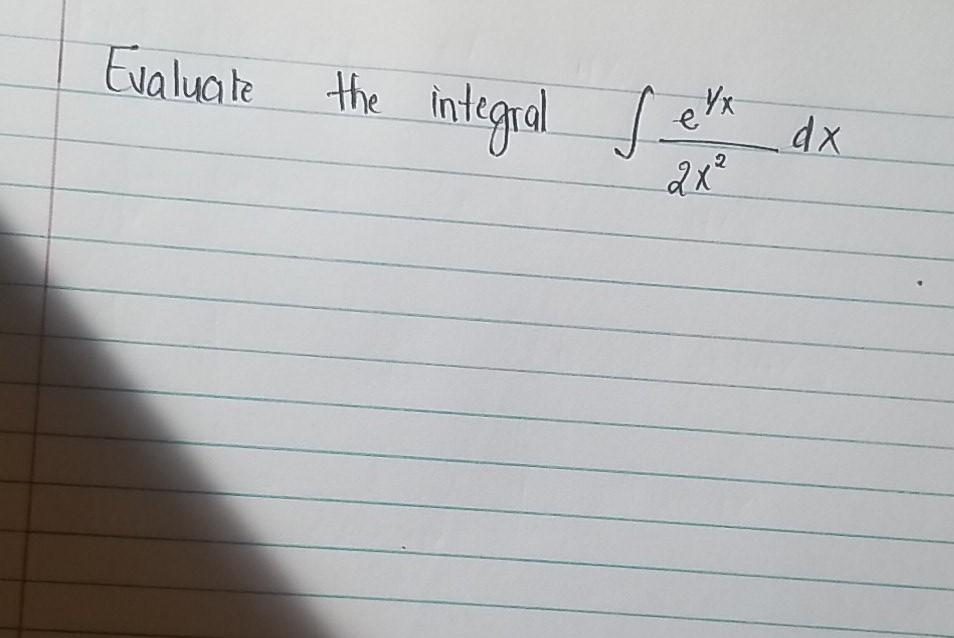 Evaluate the integral ∫ e^{1/x} / 2x² dx